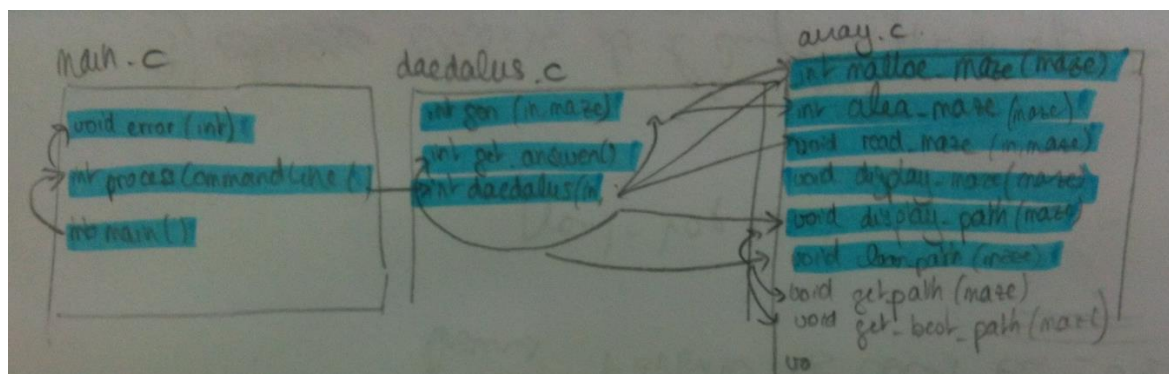 main.c
void error (int)
int processCommandLine ()
int main ()
daedalus.c
int gen (in, maze)
int get_answer()
int daedalus(in
array.c
int malloc_maze (maze)
int alea_maze (maze)
void read_maze (in, maze)
void display_maze (maze)
void display_path (maze)
void clean_path (maze)
void get_path (maze)
void get_best_path (maze)
vo